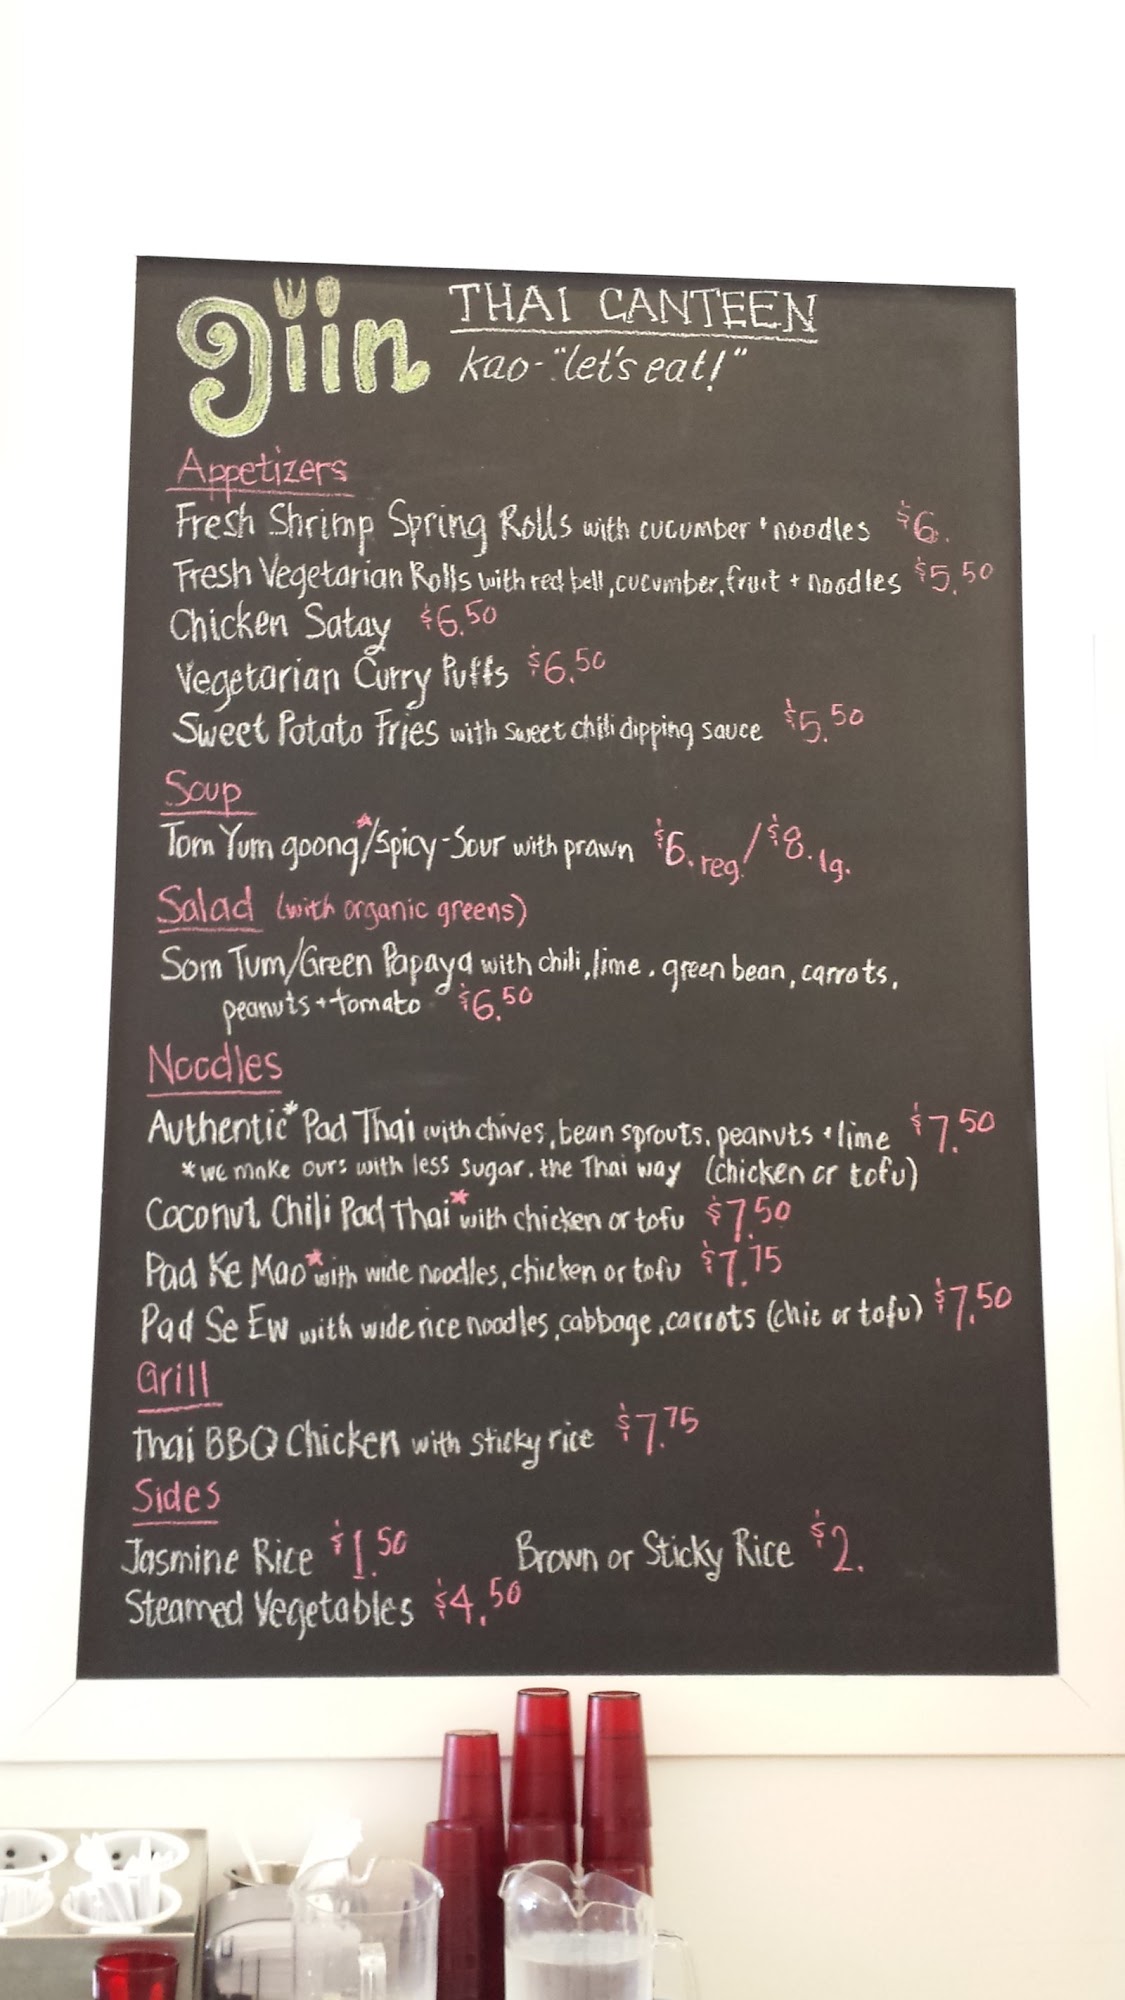 giin THAI CANTEEN
kao-"let's eat!"
Appetizers
Fresh Shrimp Spring Rolls with cucumber + noodles $6.
Fresh Vegetarian Rolls with red bell, cucumber, fruit + noodles $5.50
Chicken Satay $6.50
Vegetarian Curry Puffs $6.50
Sweet Potato Fries with sweet chili dipping sauce $5.50
Soup
Tom Yum goong*/Spicy-Sour with prawn $6. reg./$8. lg.
Salad (with organic greens)
Som Tum/Green Papaya with chili, lime, green bean, carrots,
peanuts + tomato $6.50
Noodles
Authentic* Pad Thai with chives, bean sprouts, peanuts + lime $7.50
*we make ours with less sugar. the Thai way (chicken or tofu)
Coconut Chili Pad Thai* with chicken or tofu $7.50
Pad Ke Mao* with wide noodles, chicken or tofu $7.75
Pad Se Ew with wide rice noodles, cabbage, carrots (chic or tofu) $7.50
Grill
Thai BBQ Chicken with sticky rice $7.75
Sides
Jasmine Rice $1.50 Brown or Sticky Rice $2.
Steamed Vegetables $4.50